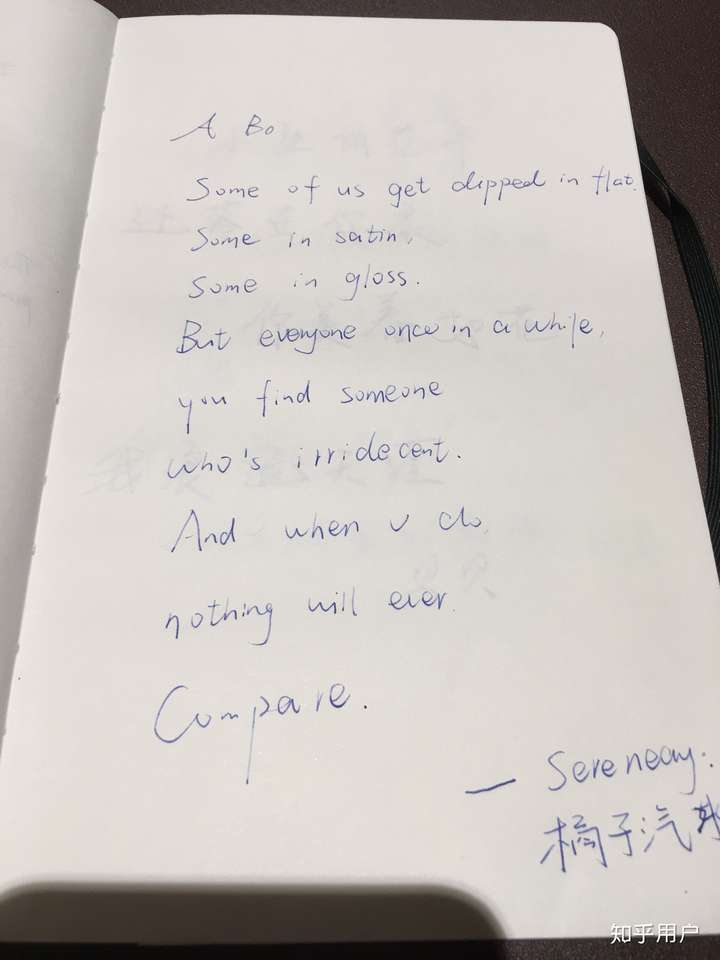 A Bo
Some of us get dipped in flat.
Some in satin,
Some in gloss.
But everyone once in a while,
you find someone
who's irridecent.
And when u do,
nothing will ever.
Compare.
— Sereneay.
橘子汽水
知乎用户